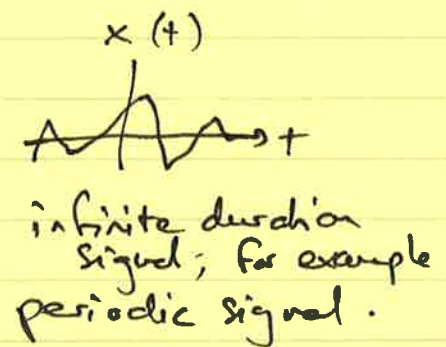 x (t)
t
infinite duration
signal; for example
periodic signal.